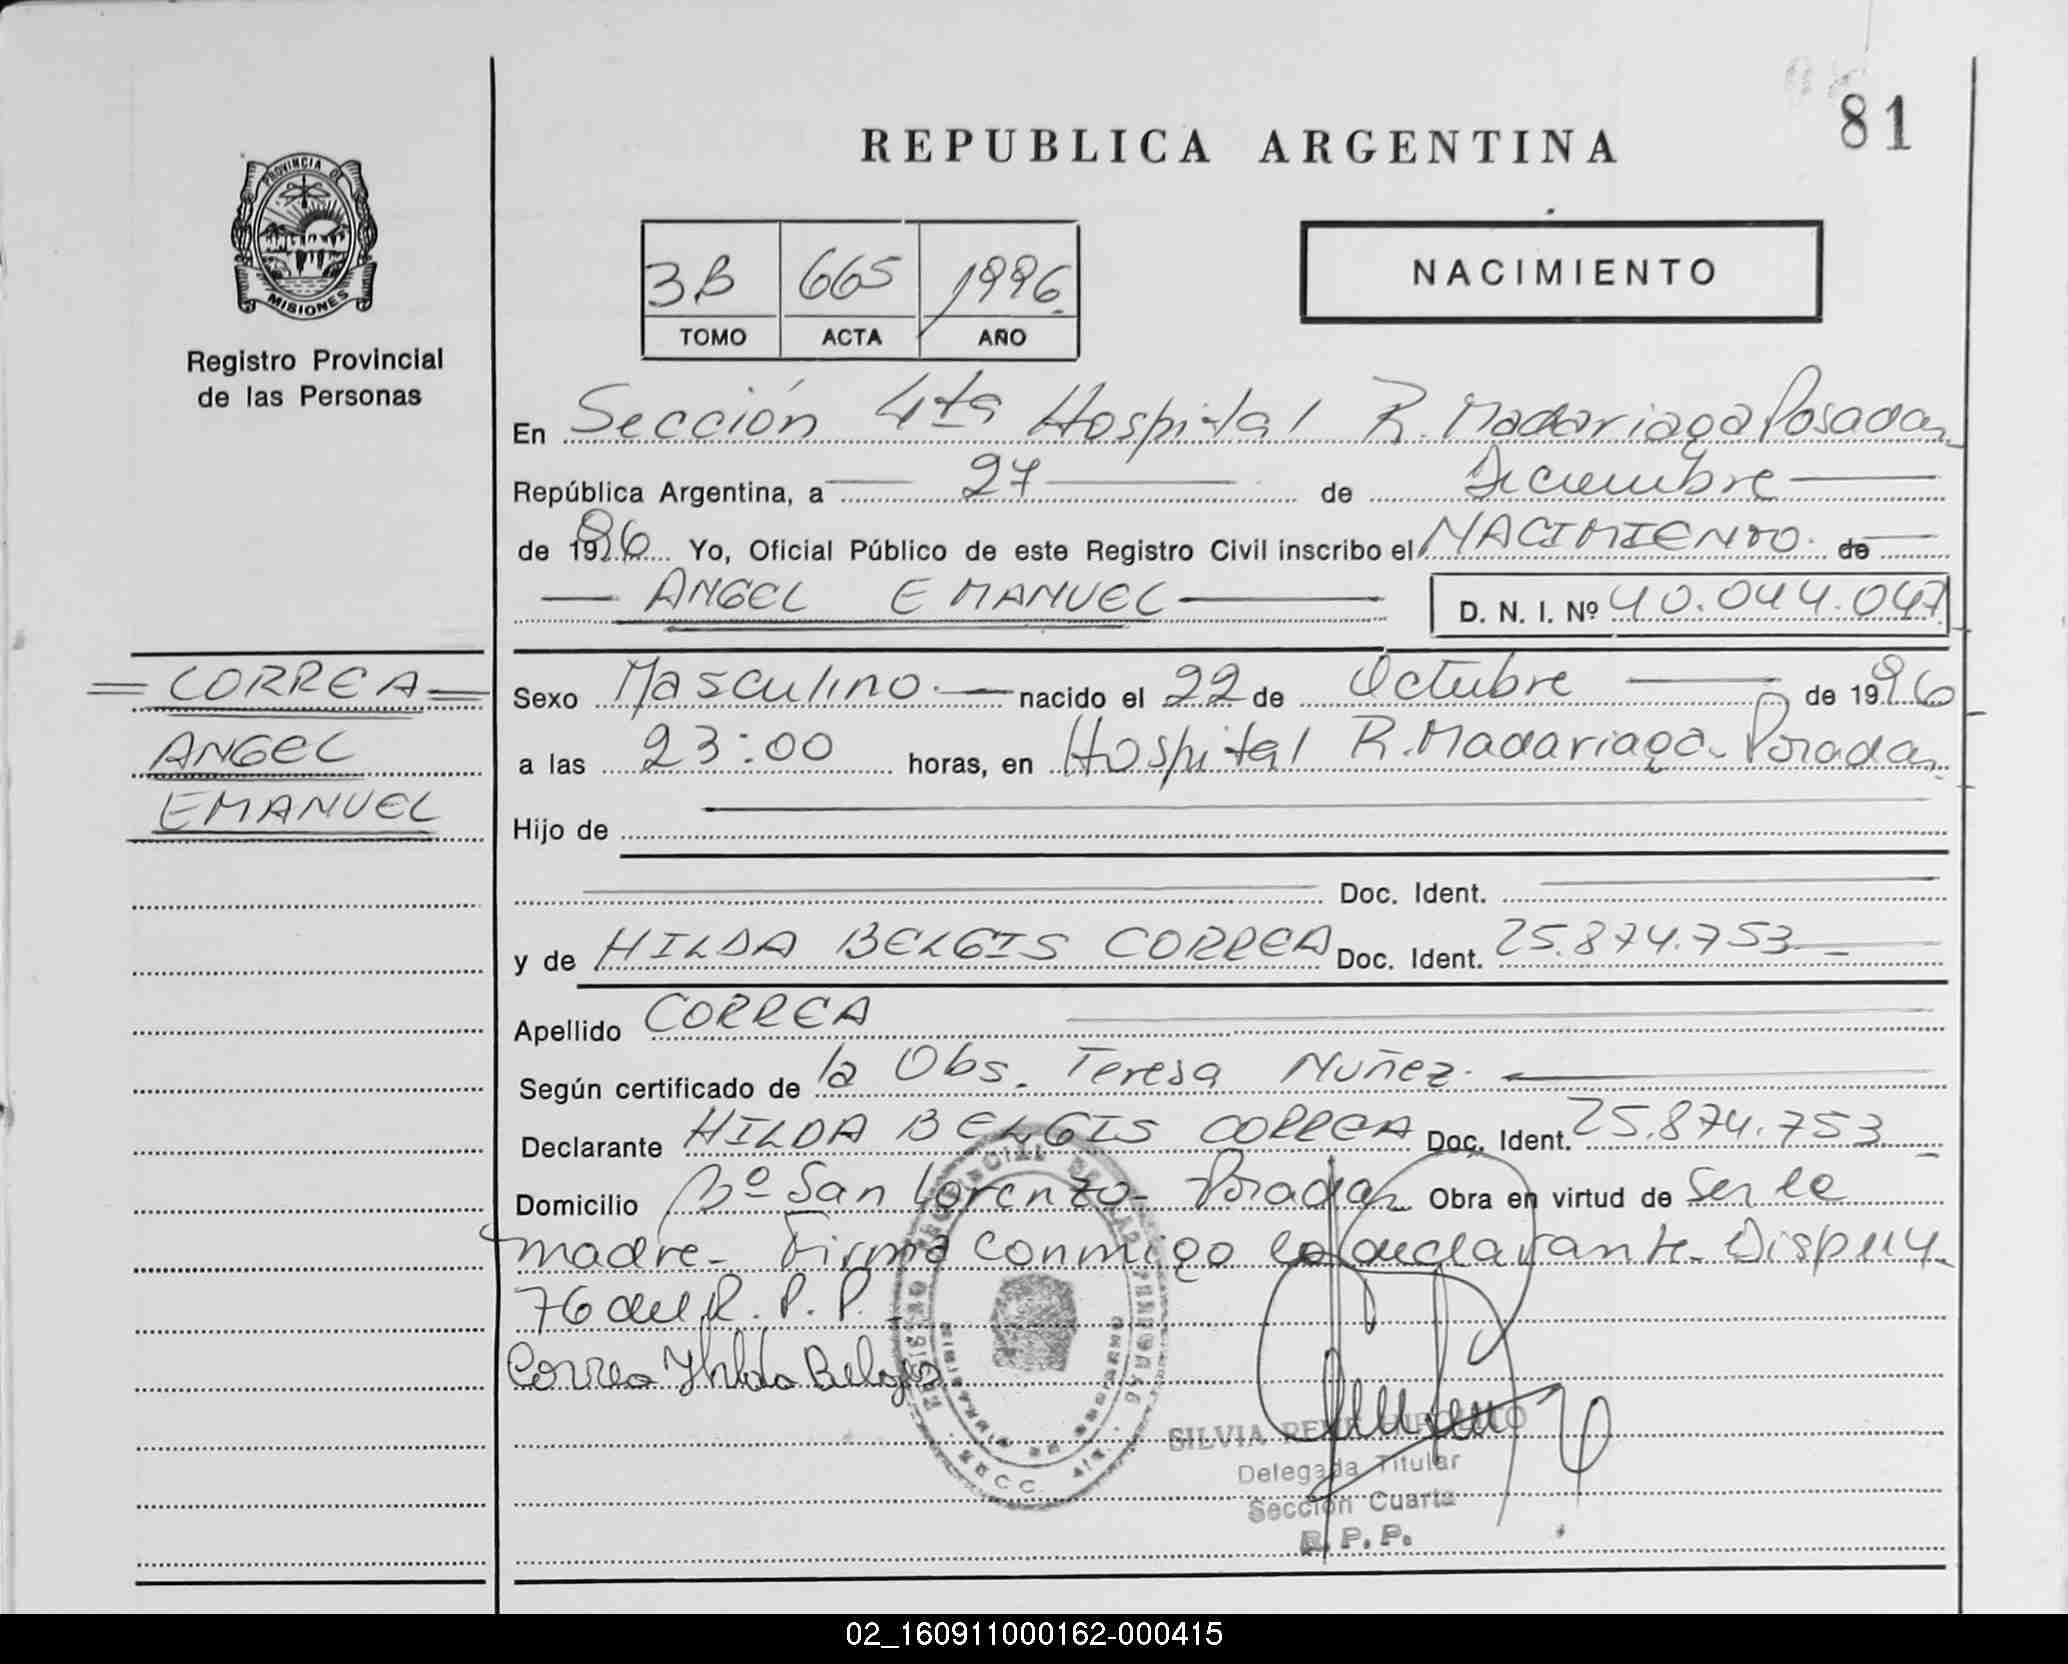 81
REPUBLICA ARGENTINA
PROVINCIA DE
MISIONES
Registro Provincial
de las Personas
3B 665 1996
TOMO ACTA AÑO
NACIMIENTO
En Sección 4ta Hospital R. Madariaga Posadas
República Argentina, a 27 de Diciembre
de 1996 Yo, Oficial Público de este Registro Civil inscribo el NACIMIENTO. de
ANGEL EMANUEL D. N. I. Nº 40.044.047
CORREA
ANGEL
EMANUEL
Sexo Masculino. nacido el 22 de Octubre de 1996
a las 23:00 horas, en Hospital R. Madariaga - Posadas
Hijo de
Doc. Ident.
y de HILDA BELGIS CORREA Doc. Ident. 25.874.753
Apellido CORREA
Según certificado de la Obs. Teresa Nuñez.
Declarante HILDA BELGIS CORREA Doc. Ident. 25.874.753
Domicilio Bº San Lorenzo - Posadas Obra en virtud de ser la
madre - Firma conmigo la declarante -
76 del R. P. P.
Correa Hilda Belgis
SILVIA
Delegada Titular
Sección Cuarta
R. P. P.
02_160911000162-000415